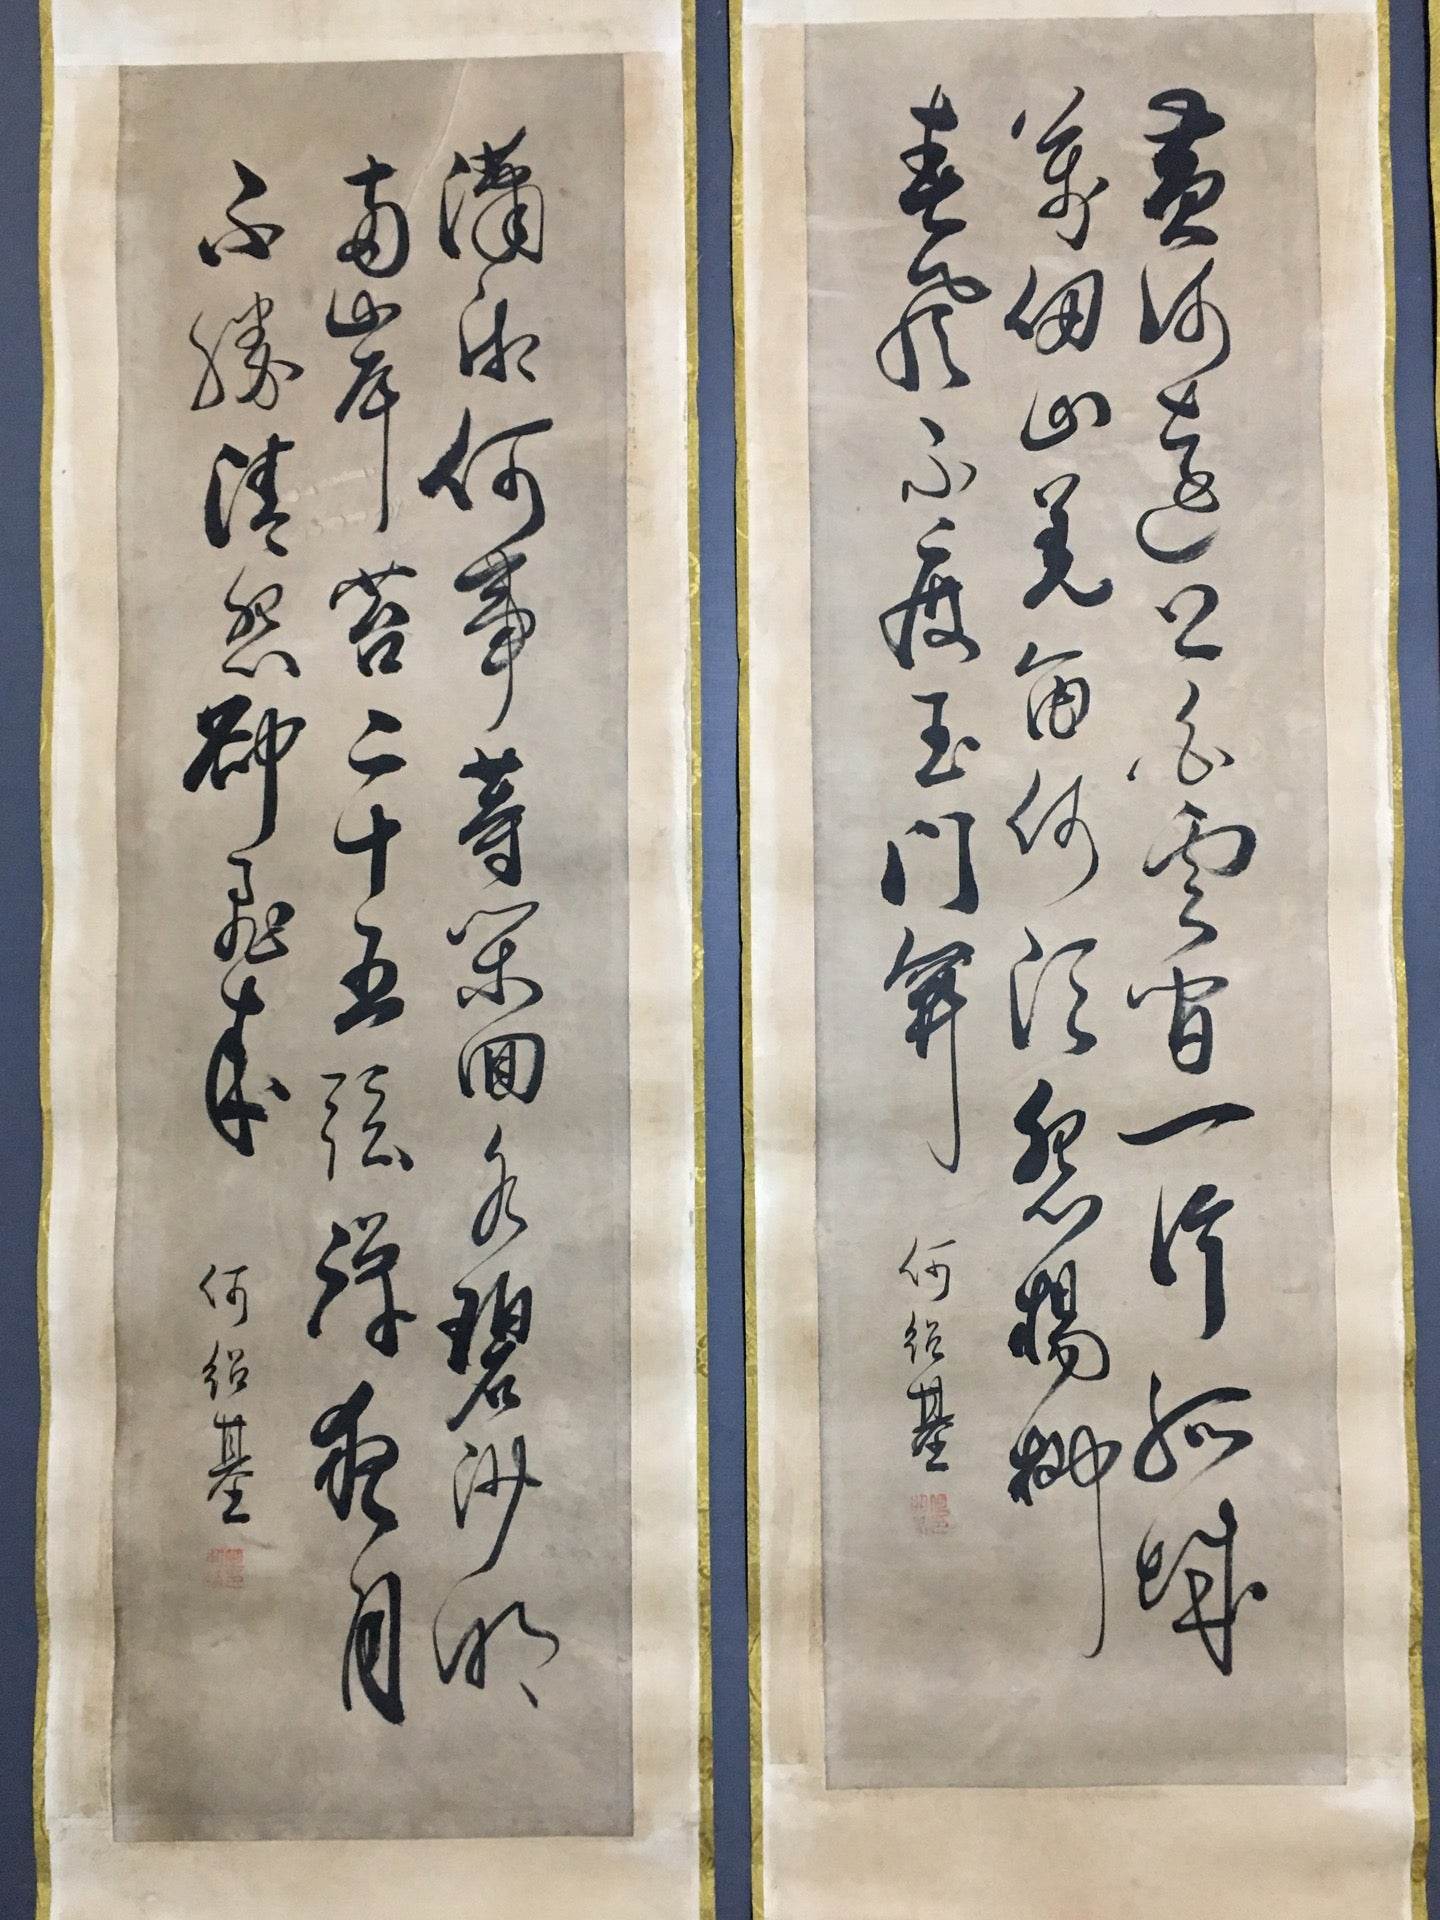 黄河遠上白雲間一片孤城
萬仞山羌笛何須怨楊柳
春風不度玉門關
何紹基
瀟湘何事等閑回水碧沙明
兩岸苔二十五弦彈夜月
不勝清怨卻飛來
何紹基